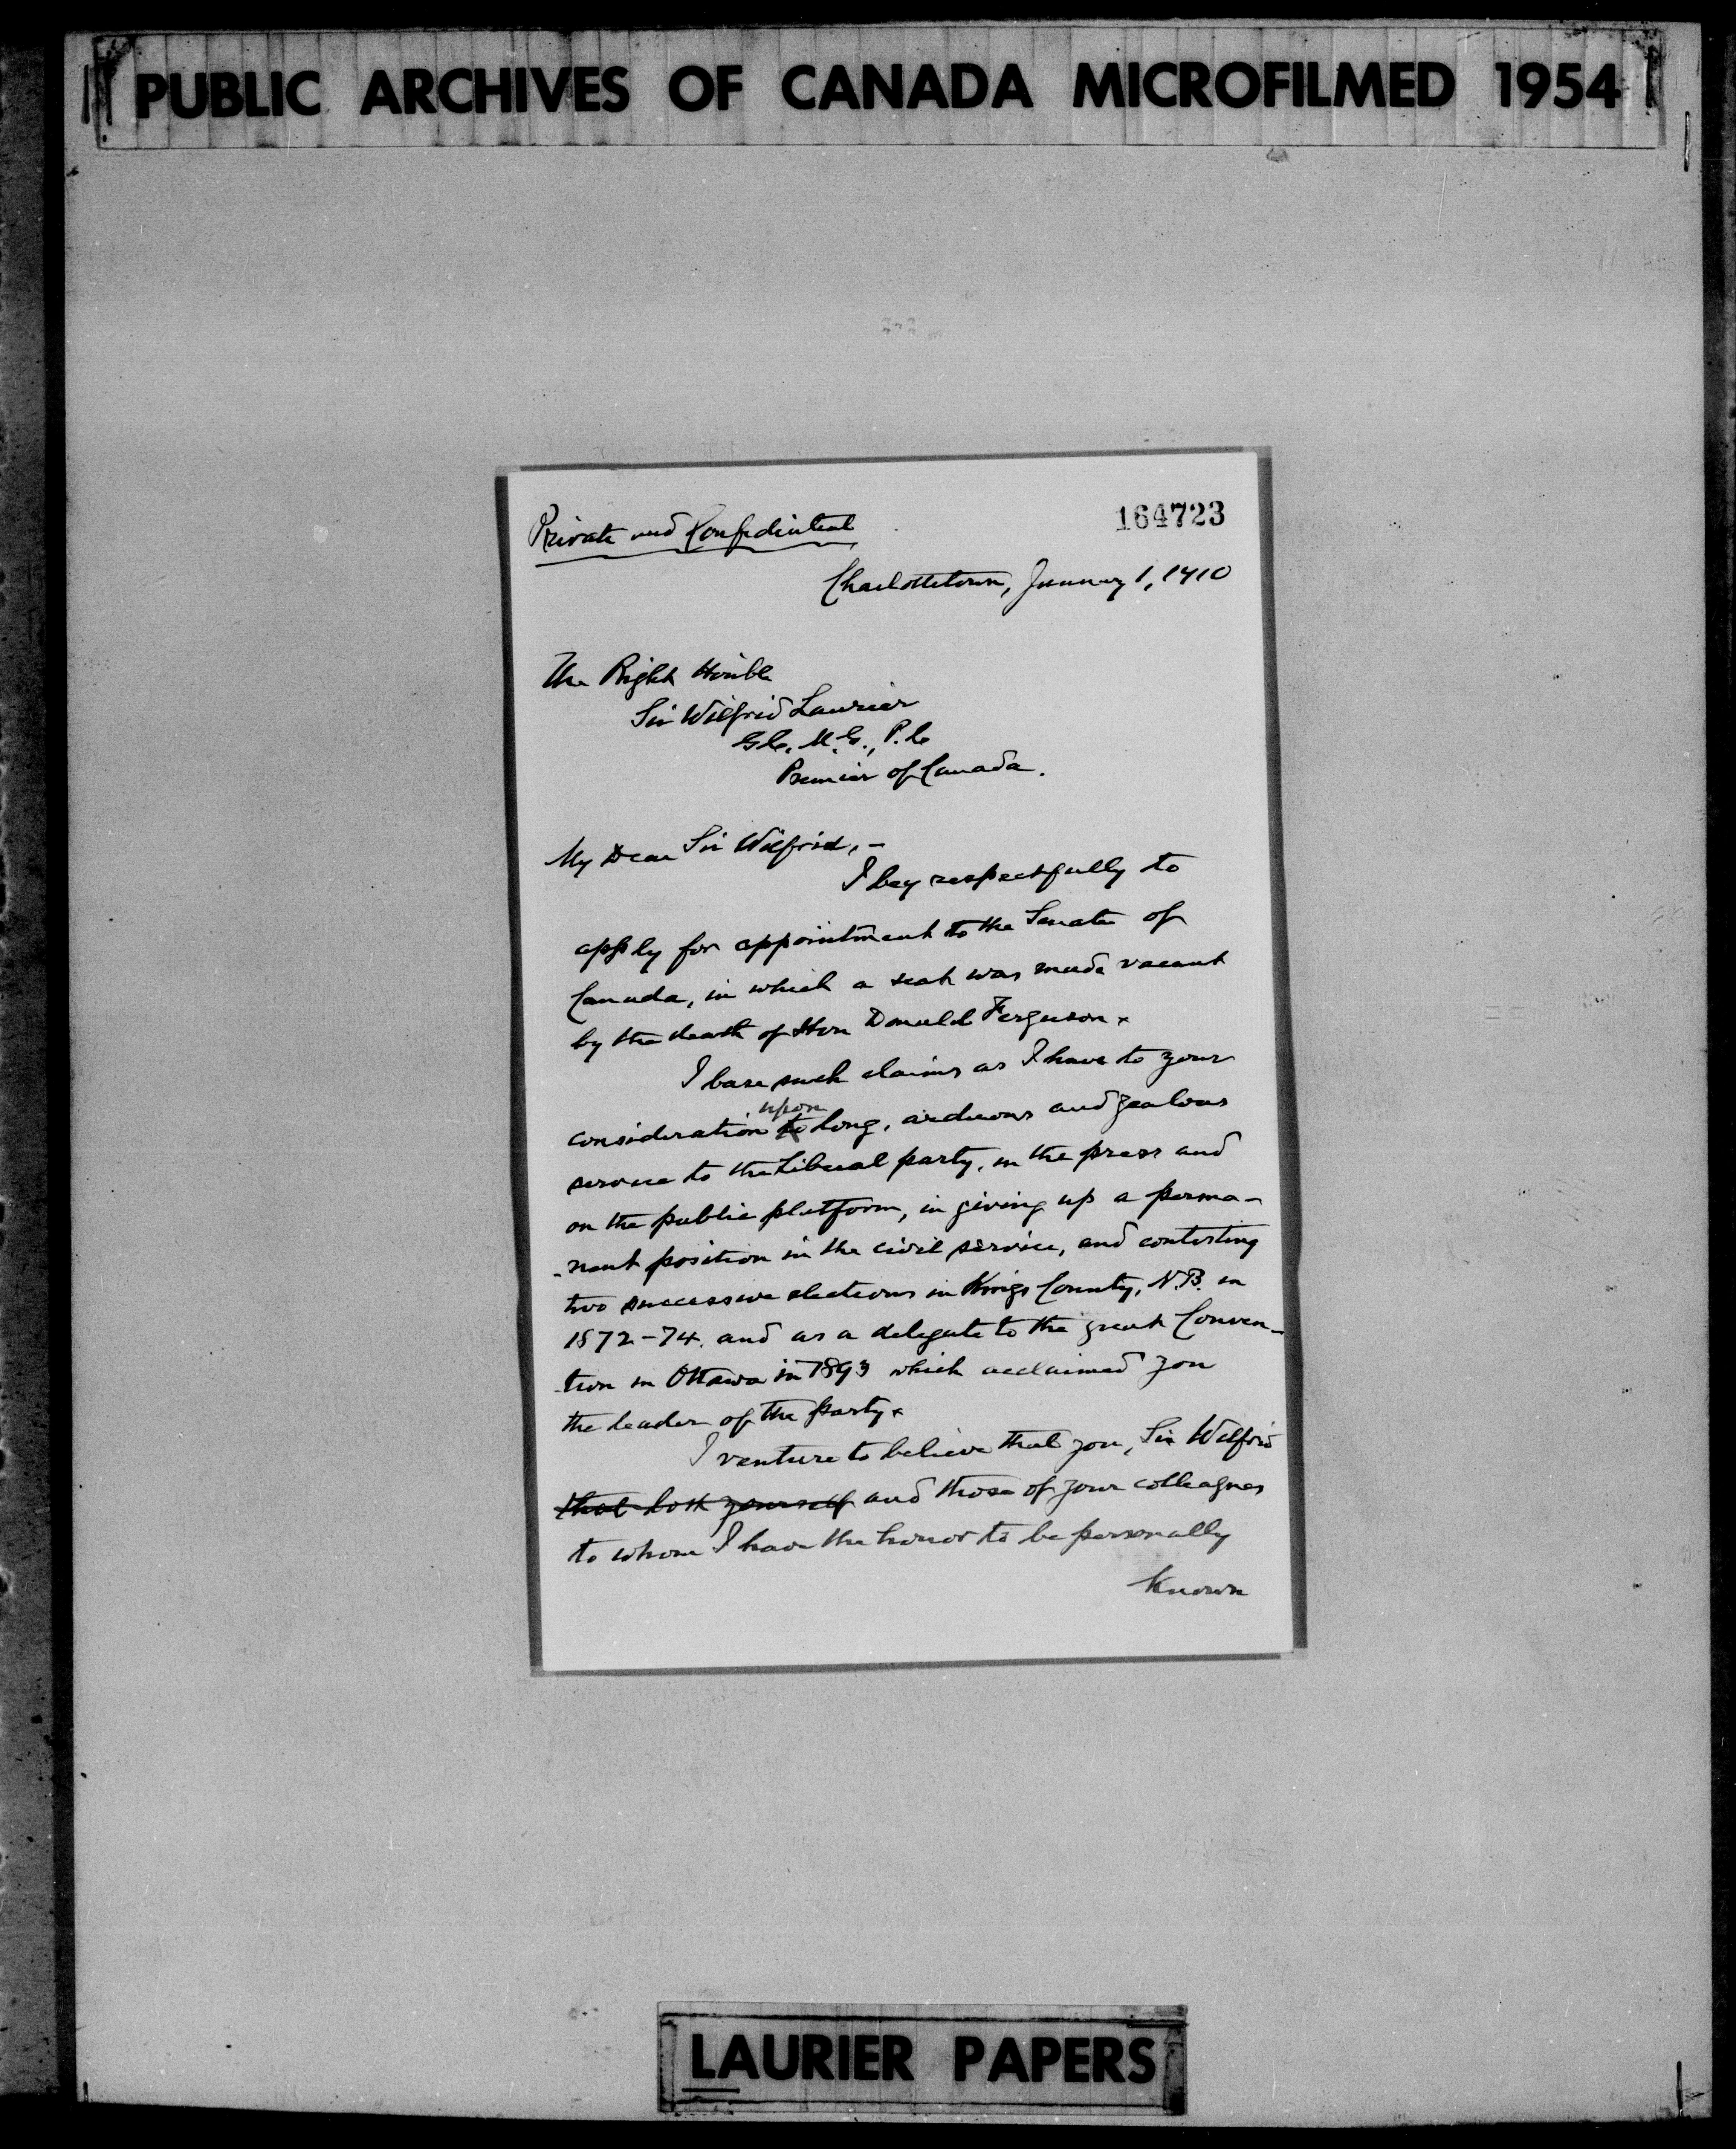 PUBLIC ARCHIVES OF CANADA MICROFILMED 1954
164723
Private and Confidential
Charlottetown, January 1, 1910
The Right Honble
Sir Wilfrid Laurier
G.C. M. G., P. C
Premier of Canada.
My Dear Sir Wilfrid, -
I beg respectfully to
apply for appointment to the Senate of
Canada, in which a seat was made vacant
by the death of Hon Donald Ferguson.
I base such claims as I have to your
upon
consideration to long, arduous and zealous
service to the Liberal party, in the press and
on the public platform, in giving up a perma-
-nent position in the civil service, and contesting
two successive elections in Kings County, N.B. in
1872-74. and as a delegate to the great Conven-
-tion in Ottawa in 1893 which acclaimed you
the leader of the party.
I venture to believe that you, Sir Wilfrid
that both yourself and those of your colleagues
to whom I have the honor to be personally
Known
LAURIER PAPERS